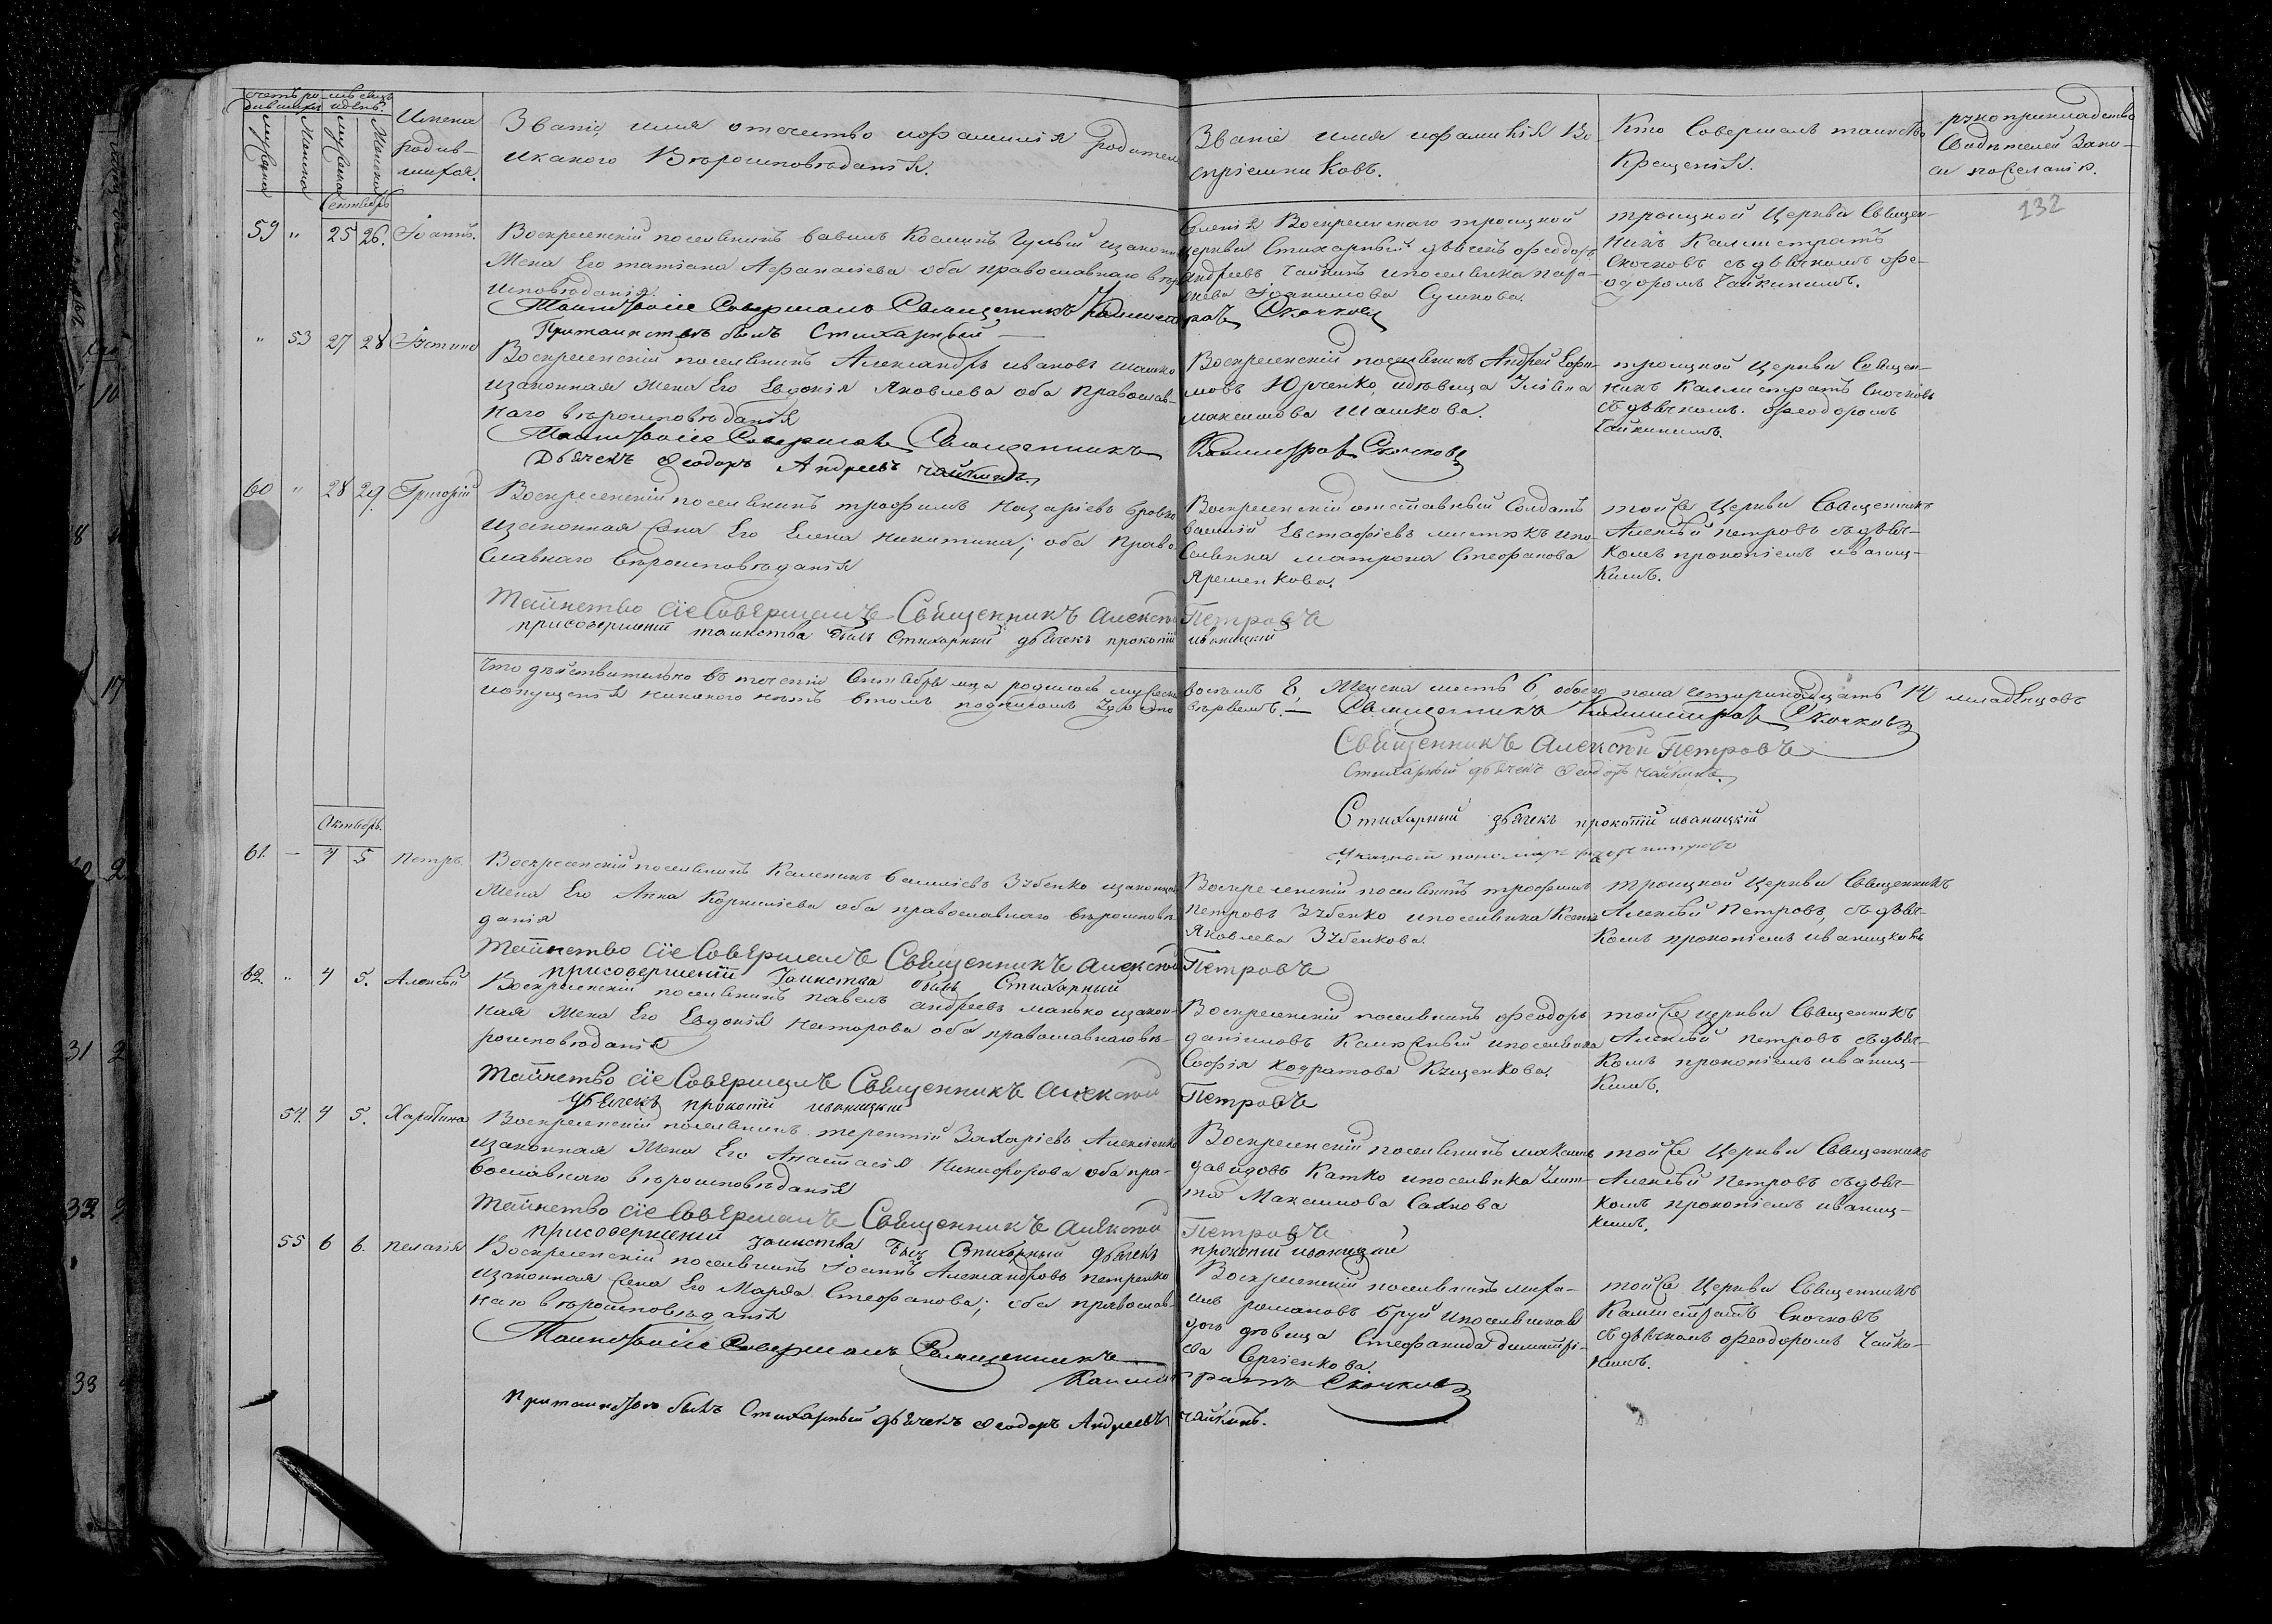 Имена
родив-
шихся.
Званіе имя отечество и фамилія родителей
и какого Вѣроисповѣданія.
Званіе имя и фамилія Во-
спріемниковъ.
Кто Совершалъ таинство
Крещенія.
рукоприкладство
Свидѣтелей Запи-
си по желанію.
132
Сентябрь
59 " 25 26. Іоаннъ.
Воскресенскій поселянинъ Козминъ изаконная
Жена Его татіана Афанасіева оба православнаго вѣро
исповѣданія.
Селенія Воскресенскаго троицкой
церкви Стихарный дьячекъ феодоръ
андреевъ Чайкинъ ипоселянка пара-
Іоакимова Сушкова.
троицкой Церкви Священ-
никъ Каллистратъ
Скочковъ съ дьячкомъ фе-
одоромъ Чайкинымъ.
Таинство сіе Совершалъ Священникъ Каллистратъ Скочковъ
При таинствѣ былъ Стихарный
" 53 27 28
Воскресенскій поселянинъ Александръ ивановъ шашко
изаконная жена Его Евдокія Яковлева оба Православ-
наго вѣроисповѣданія
Воскресенскій поселянинъ Андрей Ефи-
мовъ Юрченко, идѣвица
максимова Шашкова.
троицкой Церкви Священ-
никъ Каллистратъ Скочковъ
съ дьячкомъ феодоромъ
Чайкинымъ.
Таинство сіе Совершалъ Священникъ Каллистратъ Скочковъ
Дьячекъ Феодоръ Андреевъ чайкинъ.
60 " 28 29. Григорій
Воскресенскій поселянинъ трофимъ Назаріевъ
изаконная жена Его Елена никитина; оба Право-
славнаго вѣроисповѣданія
Воскресенскій отставный Солдатъ
василій Евстафіевъ ипо-
селянка матрона Стефанова
Яременкова.
той же Церкви Священникъ
Алексѣй петровъ съ дьяч-
комъ прокопіемъ иваниц-
кимъ.
Таинство сіе Совершалъ Священникъ Алексѣй Петровъ
при совершеніи таинства былъ Стихарный дьячекъ прокопій иваницкій
Что дѣйствительно въ теченіи Сентября мца родилось мужеска восемь 8, Женска шесть 6, обоего пола четыренадцать 14 младенцовъ
ипропущенія никакого нѣтъ втомъ подписомъ вѣряемъ. — Священникъ Каллистратъ Скочковъ
Священникъ Алексѣй Петровъ
Стихарный дьячекъ Феодоръ чайкинъ.
Стихарный дьячекъ прокопій иваницкій
Октябрь.
61. — 4 5 Петръ.
Воскресенскій поселянинъ василіевъ Зубенко изаконная
Жена Его Анна Корниліева оба православнаго вѣроисповѣ-
данія
Воскресенскій поселянинъ трофимъ
петровъ Зубенко ипоселянка
Яковлева Зубенкова.
троицкой Церкви Священникъ
Алексѣй Петровъ, съ дьяч-
комъ прокопіемъ иваницкимъ
Таинство сіе Совершалъ Священникъ Алексѣй Петровъ
при совершеніи таинства былъ Стихарный
62. " 4 5. Алексѣй
Воскресенскій поселянинъ павелъ андреевъ манько изакон-
ная жена Его Евдокія Несторова оба православнаго вѣ-
роисповѣданія
Воскресенскій поселянинъ феодоръ
даниловъ ипоселянка
Софія Кондратова Куценкова.
той же церкви Священникъ
Алексѣй петровъ съ дьяч-
комъ прокопіемъ иваниц-
кимъ.
Таинство сіе Совершалъ Священникъ Алексѣй Петровъ
дьячекъ прокопій иваницкій
54. 4 5. Харитина
Воскресенскій поселянинъ терентій Захаріевъ Алексіенко
изаконная Жена Его Анастасія Никифорова оба пра-
вославнаго вѣроисповѣданія
Воскресенскій поселянинъ максимъ
давидовъ Катко ипоселянка
Максимова Сахнова
той же Церкви Священникъ
Алексѣй Петровъ съ дьяч-
комъ прокопіемъ иваниц-
кимъ.
Таинство сіе Совершалъ Священникъ Алексѣй Петровъ
при совершеніи таинства былъ Стихарный дьячекъ прокопій иваницкій
55 6 6. пелагія
Воскресенскій поселянинъ Іоаннъ Александровъ петренко
изаконная жена Его Марфа Стефанова; оба православ-
наго вѣроисповѣданія
Воскресенскій поселянинъ миха-
илъ романовъ
дочь дѣвица Стефанида димитрі-
ева Сергіенкова.
той же Церкви Священникъ
Каллистратъ Скочковъ
съ дьячкомъ феодоромъ Чайки-
нымъ.
Таинство сіе Совершалъ Священникъ
Каллистратъ Скочковъ
При таинствѣ былъ Стихарный дьячекъ Феодоръ Андреевъ чайкинъ.